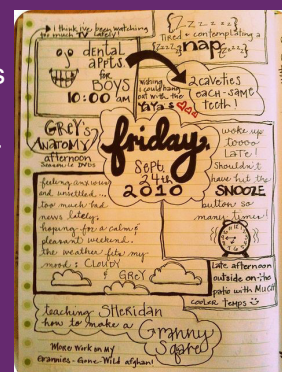 I think I've been watching
too much TV lately!
{Zzzzzz}
Tired + contemplating a
{ZzzZz} nap {Zzzz}
dental
appts.
for
BOYS
10:00 am
wishing
I could hang
out with the
YaYa's
2 caveties
each-same
teeth!
GREY'S
ANATOMY
afternoon
Season 1 DVDs
friday,
Sept.
24th
2010
woke up
toooo
Late!
Shouldn't
have hit the
SNOOZE
button so
many times!
feeling anxious
and unsettled...
too much bad
news lately.
hoping for a calm &
pleasant weekend.
the weather fits my
mood: CLOUDY
& GREY
Late afternoon
outside on the
patio with MUCH
COOLER temps
teaching SHERIDAN
how to make a
Granny
Square
MORE WORK ON MY
Grannies-Gone-Wild afghan!